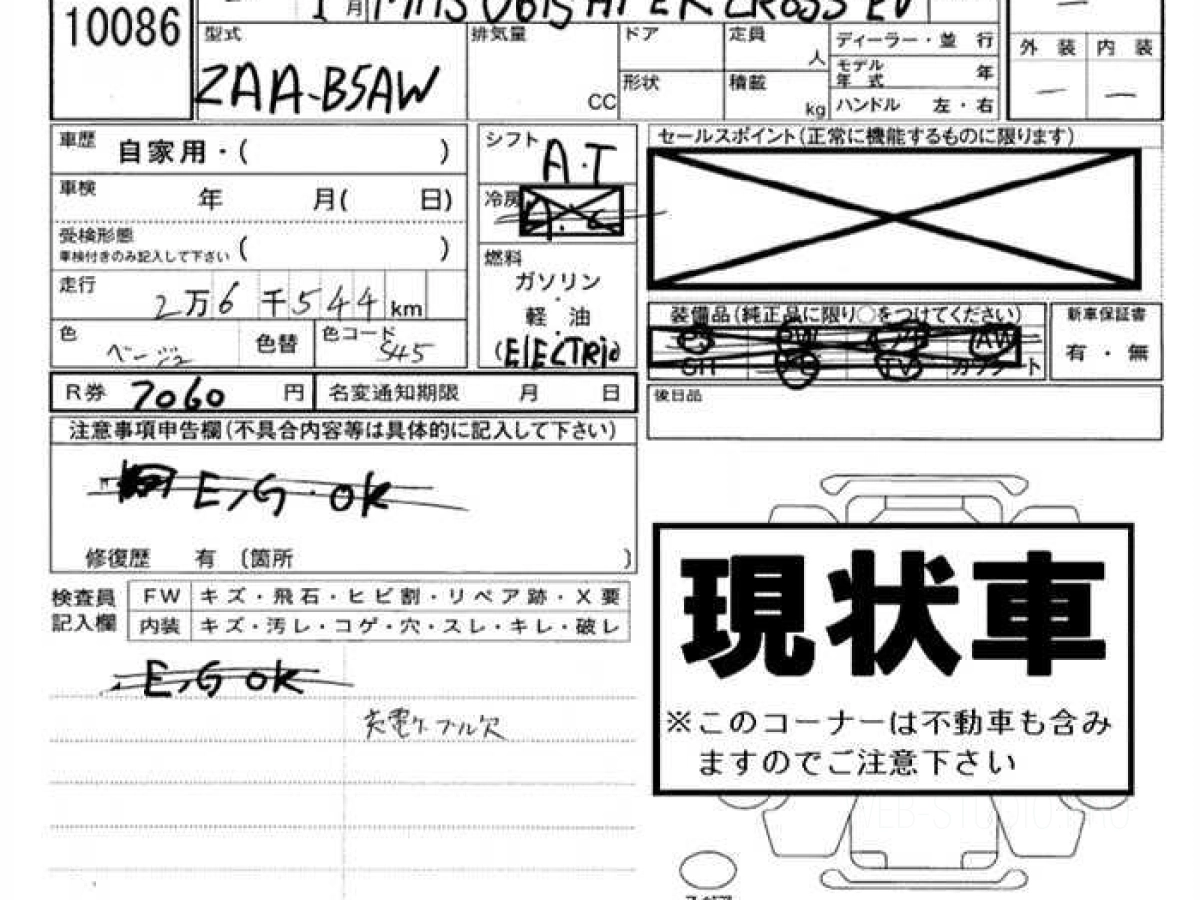 10086
1月 MITSUBIS
CROSS EV
型式
ZAA-B5AW
排気量
CC
ドア
形状
定員
人
積載
kg
ディーラー・並 行
モデル年式 年
ハンドル 左・右
外 装 内 装
— —
車歴 自家用・( )
車検 年 月( 日)
受検形態
車検付きのみ記入して下さい ( )
走行 2万6千544km
色 ベージュ 色替 色コード 545
シフト A.T
冷房 A.C
燃料
ガソリン
・
軽 油
(ElECTRic
セールスポイント(正常に機能するものに限ります)
装備品(純正品に限り○をつけてください)
PS PW AW
SH TV カワシート
新車保証書
有・無
後日品
R券 7060円 名変通知期限 月 日
注意事項申告欄(不具合内容等は具体的に記入して下さい)
E,G・OK
修復歴 有 〔箇所 )
検査員記入欄
FW キズ・飛石・ヒビ割・リペア跡・X要
内装 キズ・汚レ・コゲ・穴・スレ・キレ・破レ
E,G OK
充電ケーブル欠
現状車
※このコーナーは不動車も含み
ますのでご注意下さい